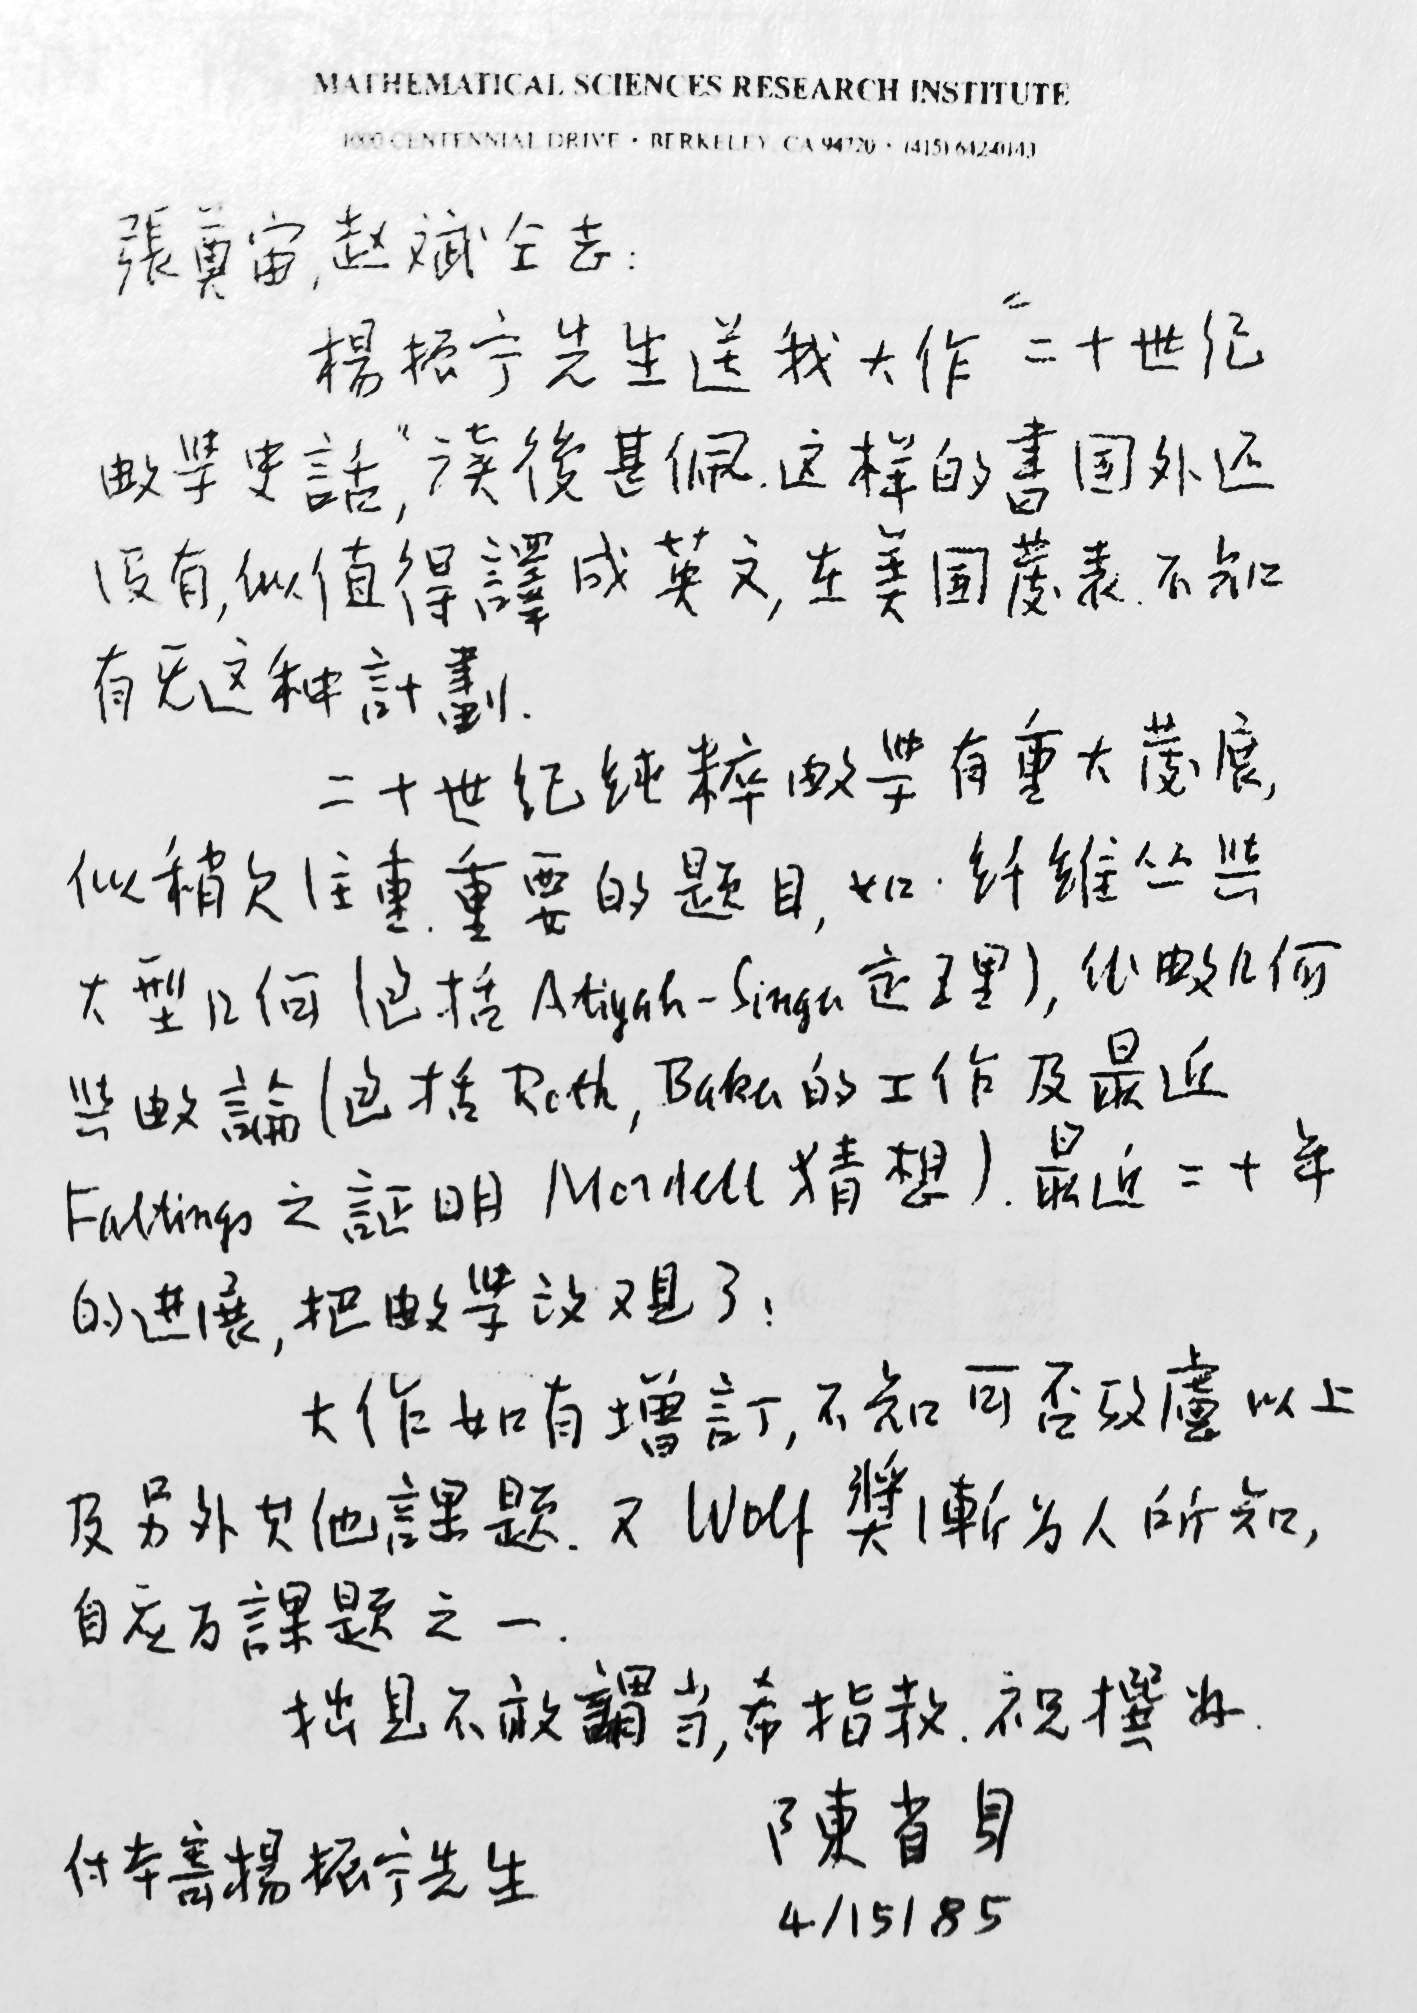 MATHEMATICAL SCIENCES RESEARCH INSTITUTE
1000 CENTENNIAL DRIVE • BERKELEY, CA 94720 • (415) 642-0143
張奠宙,赵斌仝志:
楊振宁先生送我大作"二十世纪
数学史話",读後甚佩.这样的書国外还
没有,似值得譯成英文,在美国發表.不知
有无这种計劃.
二十世紀純粹数学有重大發展,
似稍欠注重.重要的题目,如:纤維丛与
大型几何(包括Atiyah-Singer定理),代数几何
与数論(包括Roth, Baker的工作及最近
Faltings之証明Mordell猜想).最近二十年
的进展,把数学改观了!
大作如有增訂,不知可否考慮以上
及另外其他課题.又Wolf奬漸为人所知,
自应为課题之一.
拙見不敢謂当,希指教.祝撰安.
陳省身
4/15/85
付本寄楊振宁先生